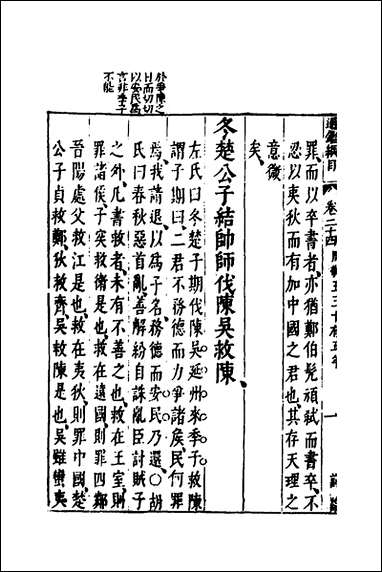 通鑑綱目 卷二十四 一
罪而以卒書者亦猶鄭伯髡頑弒而書卒不
忍以夷狄而有加中國之君也其存天理之
意微
矣
冬楚公子結帥師伐陳吳救陳
於爭陳之
日而切切
以安民爲
言非季子
不能
左氏曰冬楚子期伐陳吳延州來季子救陳
謂子期曰二君不務德而力爭諸侯民何罪
焉我請退以爲子名務德而安民乃還○胡
氏曰春秋惡首亂善解紛自誅亂臣討賊子
之外凡書救者未有不善之也救在王室則
罪諸侯子突救衛是也救在遠國則罪四鄰
晉陽處父救江是也救在夷狄則罪中國楚
公子貞救鄭狄救齊吳救陳是也吳雖蠻夷